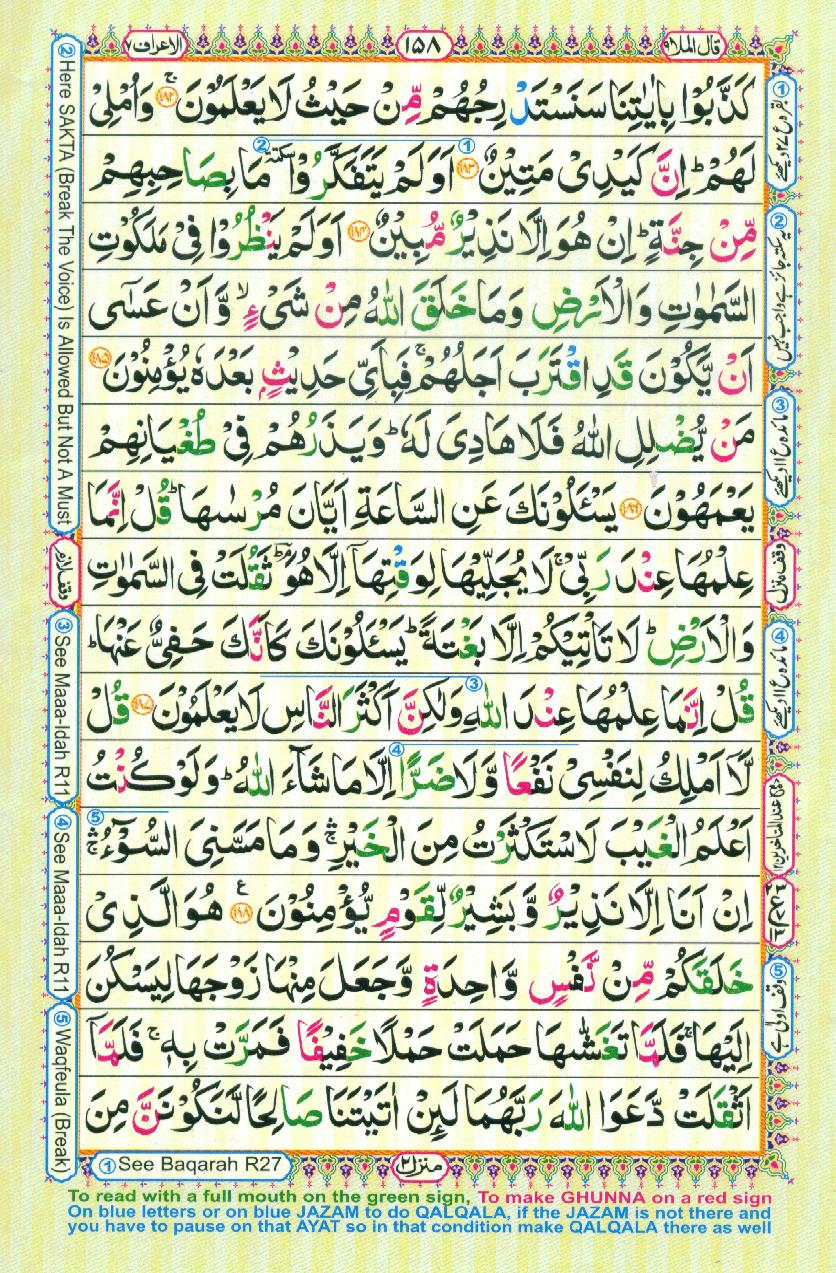 الاعراف ٧
١٥٨
قال الملا ٩
كَذَّبُوْا بِاٰيٰتِنَا سَنَسْتَدْرِجُهُمْ مِّنْ حَيْثُ لَا يَعْلَمُوْنَ ۚۖ ﴿۱۸۲﴾ وَاُمْلِىْ
لَهُمْ ؕ اِنَّ كَيْدِىْ مَتِيْنٌ ﴿۱۸۳﴾ اَوَلَمْ يَتَفَكَّرُوْا ٚ سكتة مَا بِصَاحِبِهِمْ
مِّنْ جِنَّةٍ ؕ اِنْ هُوَ اِلَّا نَذِيْرٌ مُّبِيْنٌ ﴿۱۸۴﴾ اَوَلَمْ يَنْظُرُوْا فِىْ مَلَكُوْتِ
السَّمٰوٰتِ وَالْاَرْضِ وَمَا خَلَقَ اللّٰهُ مِنْ شَىْءٍ ۙ وَّاَنْ عَسٰٓى
اَنْ يَّكُوْنَ قَدِ اقْتَرَبَ اَجَلُهُمْ ۚ فَبِاَىِّ حَدِيْثٍۭ بَعْدَهٗ يُؤْمِنُوْنَ ﴿۱۸۵﴾
مَنْ يُّضْلِلِ اللّٰهُ فَلَا هَادِىَ لَهٗ ؕ وَيَذَرُهُمْ فِىْ طُغْيَانِهِمْ
يَعْمَهُوْنَ ﴿۱۸۶﴾ يَسْـَٔلُوْنَكَ عَنِ السَّاعَةِ اَيَّانَ مُرْسٰٮهَا ؕ قُلْ اِنَّمَا
عِلْمُهَا عِنْدَ رَبِّىْ ۚ لَا يُجَلِّيْهَا لِوَقْتِهَاۤ اِلَّا هُوَ ۘؕ ثَقُلَتْ فِى السَّمٰوٰتِ
وَالْاَرْضِ ؕ لَا تَاْتِيْكُمْ اِلَّا بَغْتَةً ؕ يَسْـَٔلُوْنَكَ كَاَنَّكَ حَفِىٌّ عَنْهَا ؕ
قُلْ اِنَّمَا عِلْمُهَا عِنْدَ اللّٰهِ وَلٰكِنَّ اَكْثَرَ النَّاسِ لَا يَعْلَمُوْنَ ﴿۱۸۷﴾ قُلْ
لَّاۤ اَمْلِكُ لِنَفْسِىْ نَفْعًا وَّلَا ضَرًّا اِلَّا مَا شَآءَ اللّٰهُ ؕ وَلَوْ كُنْتُ
اَعْلَمُ الْغَيْبَ لَاسْتَكْثَرْتُ مِنَ الْخَيْرِ ۛۚ وَمَا مَسَّنِىَ السُّوْٓءُ ۛۚ
اِنْ اَنَا اِلَّا نَذِيْرٌ وَّبَشِيْرٌ لِّقَوْمٍ يُّؤْمِنُوْنَ ﴿۱۸۸﴾ ع هُوَ الَّذِىْ
خَلَقَكُمْ مِّنْ نَّفْسٍ وَّاحِدَةٍ وَّجَعَلَ مِنْهَا زَوْجَهَا لِيَسْكُنَ
اِلَيْهَا ۚ فَلَمَّا تَغَشّٰٮهَا حَمَلَتْ حَمْلًا خَفِيْفًا فَمَرَّتْ بِهٖ ۚ فَلَمَّاۤ
اَثْقَلَتْ دَّعَوَا اللّٰهَ رَبَّهُمَا لَئِنْ اٰتَيْتَنَا صَالِحًا لَّنَكُوْنَنَّ مِنَ
② Here SAKTA (Break The Voice) Is Allowed But Not A Must
وقف لازم
③ See Maaa-Idah R11
④ See Maaa-Idah R11
⑤ Waqfeula (Break)
① See Baqarah R27
منزل ٢
To read with a full mouth on the green sign, To make GHUNNA on a red sign
On blue letters or on blue JAZAM to do QALQALA, if the JAZAM is not there and
you have to pause on that AYAT so in that condition make QALQALA there as well